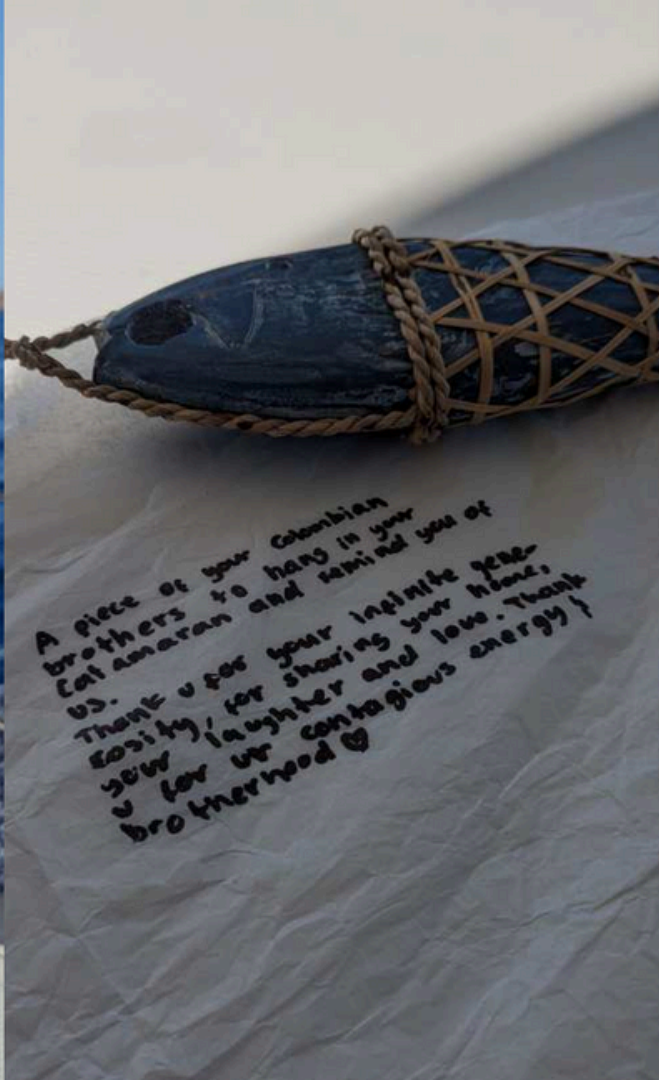 A piece of your Colombian
brothers to hang in your
Catamaran and remind you of
us.
Thank u for your infinite gene-
rosity, for sharing your home,
your laughter and love. Thank
u for ur contagious energy &
brotherhood ♡